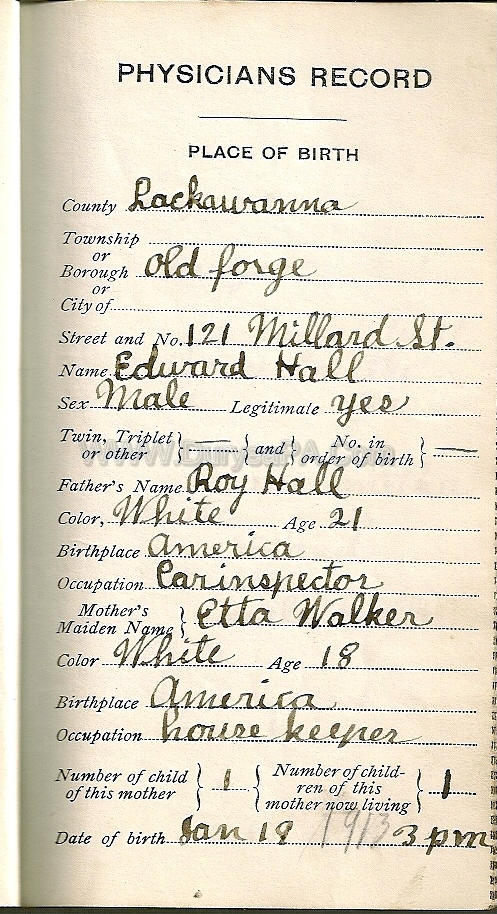 PHYSICIANS RECORD
PLACE OF BIRTH
County Lackawanna
Township
or
Borough Old forge
or
City of
Street and No. 121 Millard St.
Name Edward Hall
Sex Male Legitimate yes
Twin, Triplet or other } — { and No. in order of birth } —
Father's Name Roy Hall
Color, White Age 21
Birthplace America
Occupation Carinspector
Mother's Maiden Name } Etta Walker
Color White Age 18
Birthplace America
Occupation house keeper
Number of child of this mother } 1 { Number of children of this mother now living } 1
Date of birth Jan 19 1913 3 pm